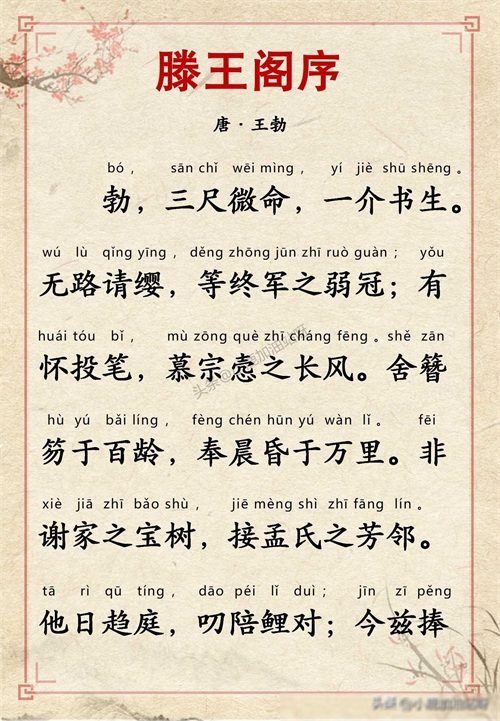 滕王阁序
唐·王勃
bó， sān chǐ wēi mìng， yí jiè shū shēng。
勃，三尺微命，一介书生。
wú lù qǐng yīng，děng zhōng jūn zhī ruò guàn； yǒu
无路请缨，等终军之弱冠；有
huái tóu bǐ， mù zōng què zhī cháng fēng。shě zān
怀投笔，慕宗悫之长风。舍簪
hù yú bǎi líng， fèng chén hūn yú wàn lǐ。 fēi
笏于百龄，奉晨昏于万里。非
xiè jiā zhī bǎo shù， jiē mèng shì zhī fāng lín。
谢家之宝树，接孟氏之芳邻。
tā rì qū tíng， dāo péi lǐ duì； jīn zī pěng
他日趋庭，叨陪鲤对；今兹捧